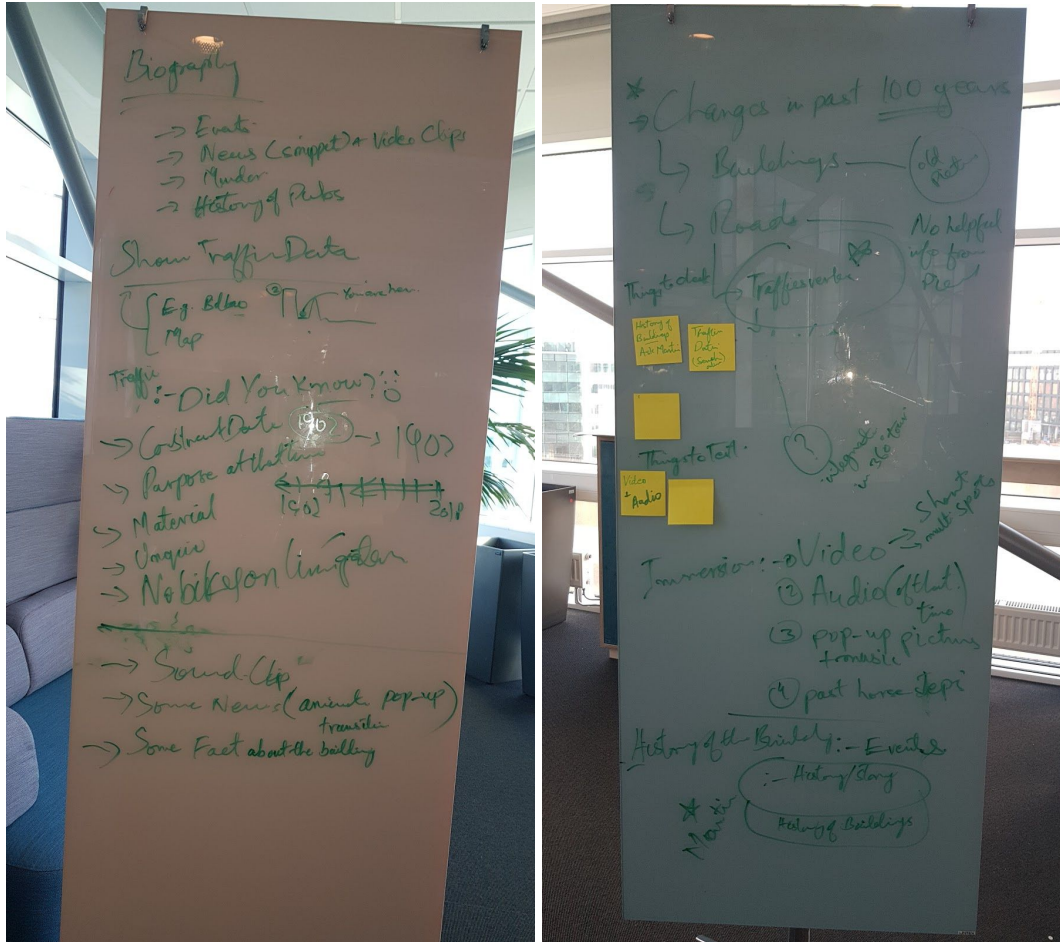 Biography
→ Events
→ News (snippet) + Video Clips
→ Murder
→ History of Pubs
Show Traffic Data
E.g. Bilbao
Map
You are here
Traffic
:- Did You Know?
→ Construct Data 1902 → 1902
→ Purpose at that time
1902 2018
→ Material
→ Unique
→ No bikes on
→ Sound Clip
→ Some News (animate pop-up)
transition
→ Some Fact about the building
→ Changes in past 100 years
Buildings
old
Roads
No helpful
info from
Things to check
History of
Buildings
Ask Martin
Traffic
Data
Things to Test.
?
integrate
360 tour
Video
+ Audio
Immersion:- Video → Short
multi spots
② Audio (of that
time)
③ pop-up pictures
④ past horse steps
History of the Building:- Events
:- History/story
History of Buildings